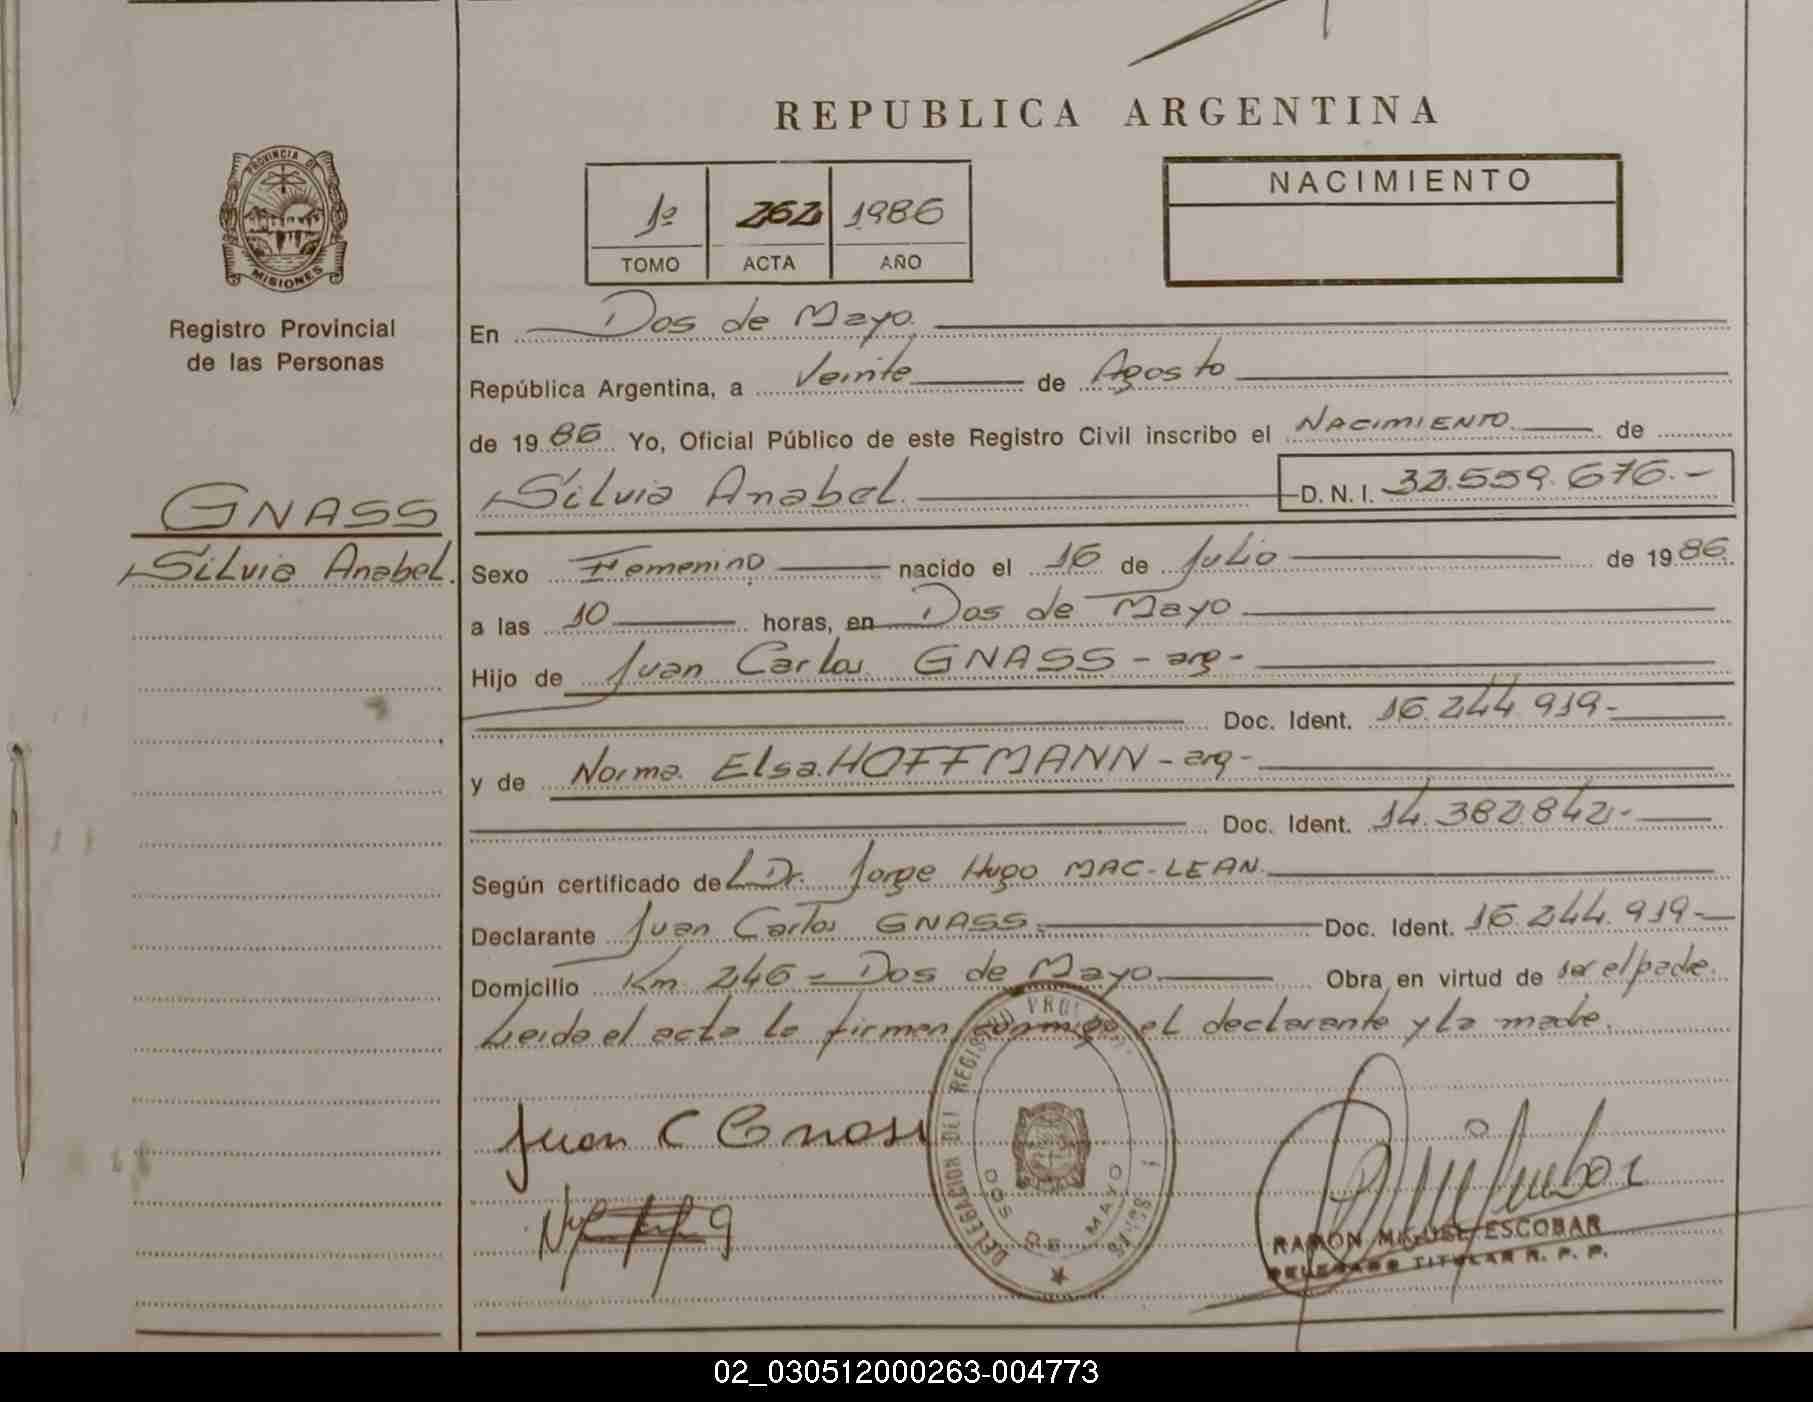 REPUBLICA ARGENTINA
PROVINCIA DE
MISIONES
Registro Provincial
de las Personas
1º 262 1986
TOMO ACTA AÑO
NACIMIENTO
En Dos de Mayo.
República Argentina, a Veinte de Agosto
de 1986 Yo, Oficial Público de este Registro Civil inscribo el NACIMIENTO de
GNASS
Silvia Anabel.
Silvia Anabel. D. N. I. 32.559.676.-
Sexo Femenino nacido el 16 de Julio de 1986.
a las 10 horas, en Dos de Mayo
Hijo de Juan Carlos GNASS - arg -
Doc. Ident. 16.244.919-
y de Norma Elsa HOFFMANN - arg -
Doc. Ident. 14.382.842.-
Según certificado del Dr. Jorge Hugo MAC-LEAN.
Declarante Juan Carlos GNASS. Doc. Ident. 16.244.919-
Domicilio Km. 246 - Dos de Mayo Obra en virtud de ser el padre.
Leida el acta la firman conmigo el declarante y la madre.
Juan C Gnass
DELEGACION DEL REGISTRO
DOS DE MAYO
RAMON MIGUEL ESCOBAR
DELEGADO TITULAR R. P. P.
02_030512000263-004773